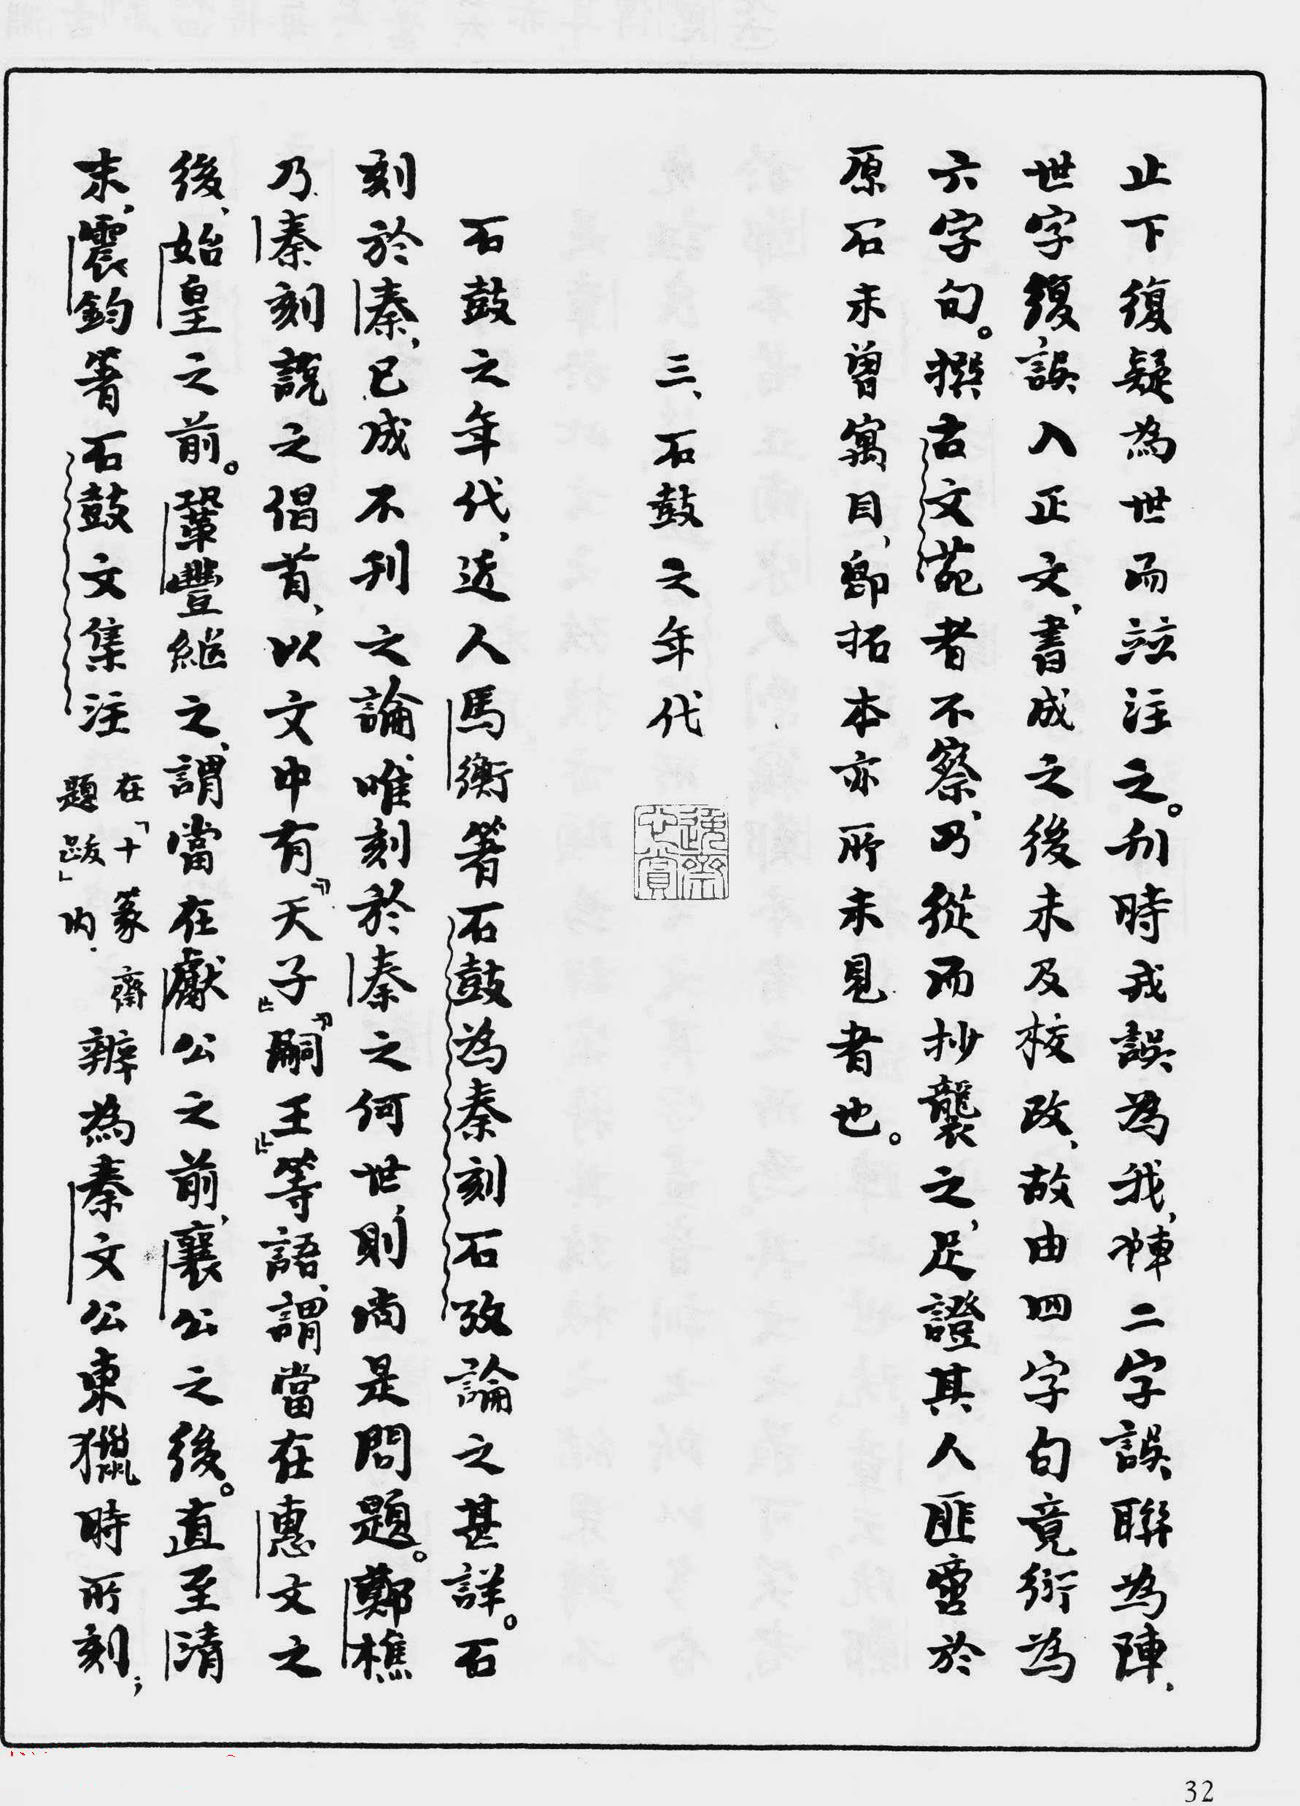 止下復疑為世而竝注之。刋時我誤為我，㥄二字誤聯為陣，
世字復誤入正文，書成之後未及校改，故由四字句竟衍為
六字句。撰古文苑者不察，乃從而抄襲之，足證其人匪啻於
原石未曾寓目，卽拓本亦所未見者也。
三、石鼓之年代
石鼓之年代，近人馬衡箸石鼓為秦刻石攷論之甚詳。石
刻於秦，已成不刊之論，唯刻於秦之何世，則尚是問題。鄭樵
乃秦刻說之倡首，以文中有「天子」「嗣王」等語，謂當在惠文之
後，始皇之前。鞏豐繼之，謂當在獻公之前，襄公之後。直至清
末，震鈞箸石鼓文集注在「十篆齋題跋」內．辨為秦文公東獵時所刻；
32